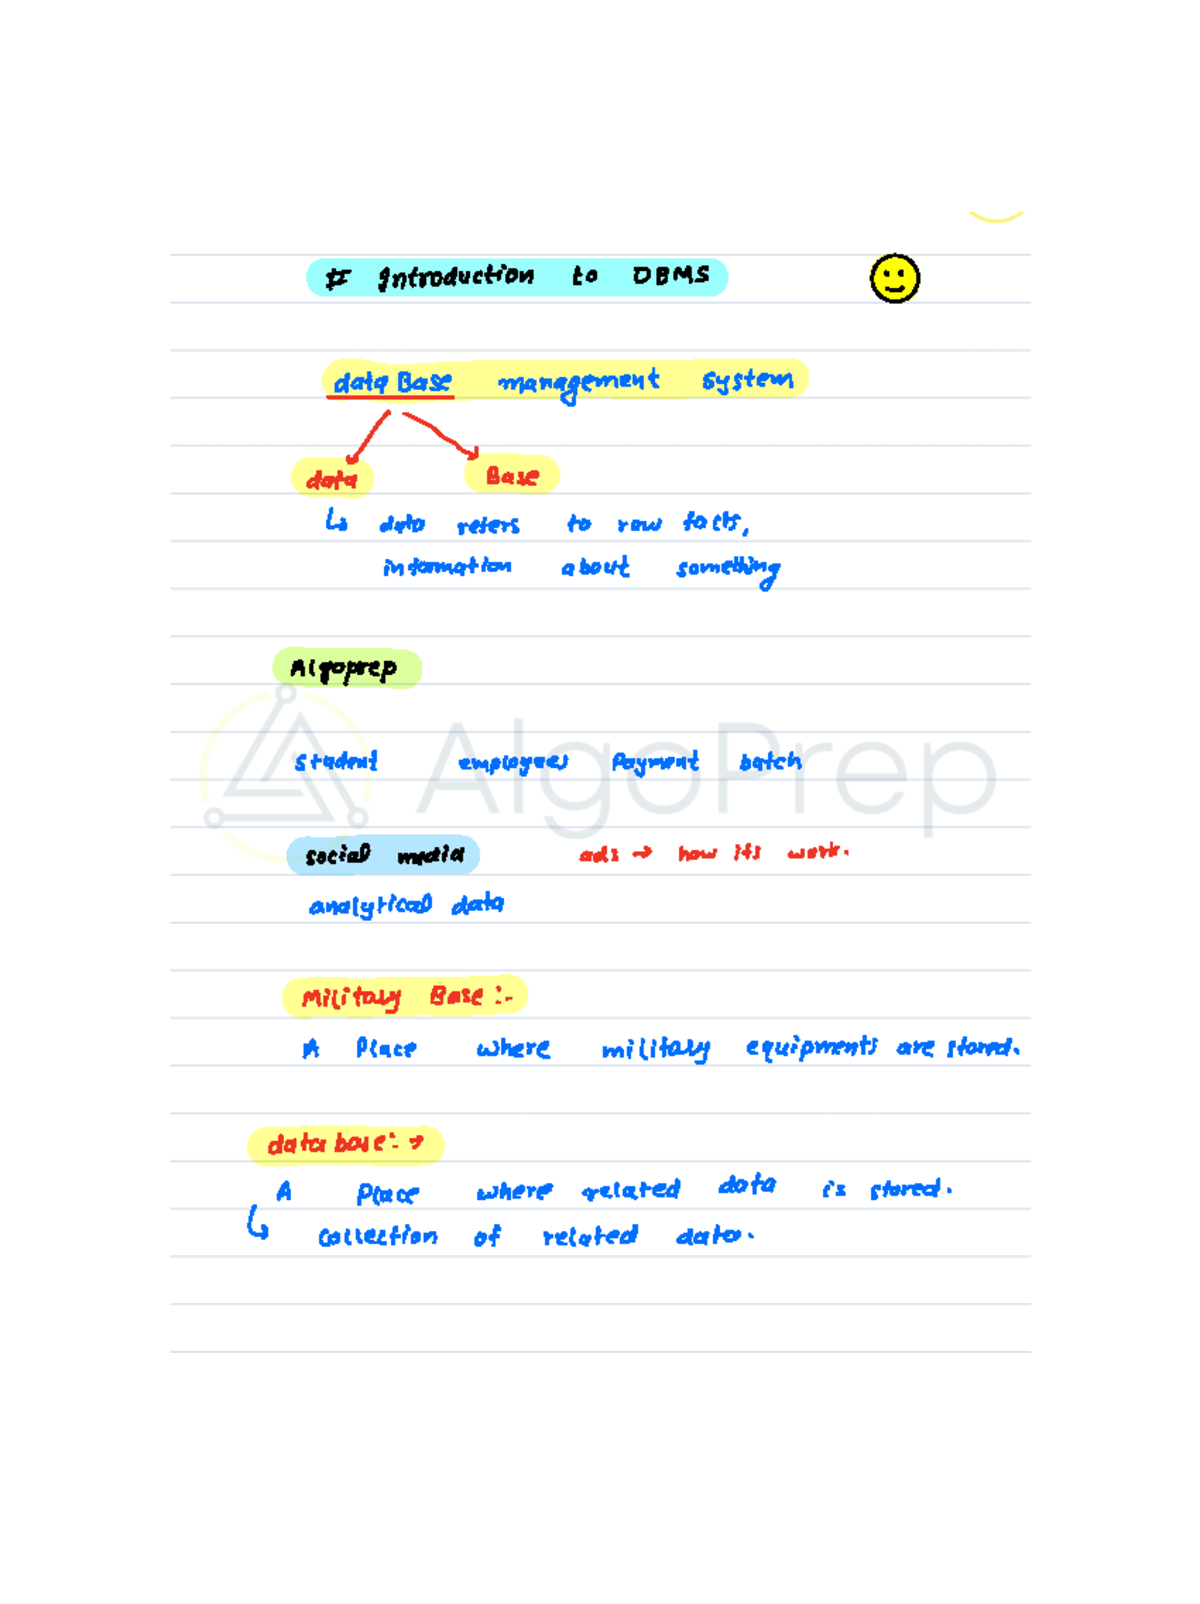 # Introduction to DBMS
dataBase management system
data Base
↳ data refers to raw facts,
information about something
Algoprep
AlgoPrep
student employees Payment batch
social media ads → how its work.
analytical data
Military Base :-
A Place where military equipments are stored.
database :- →
A Place where related data is stored.
↳ collection of related data.